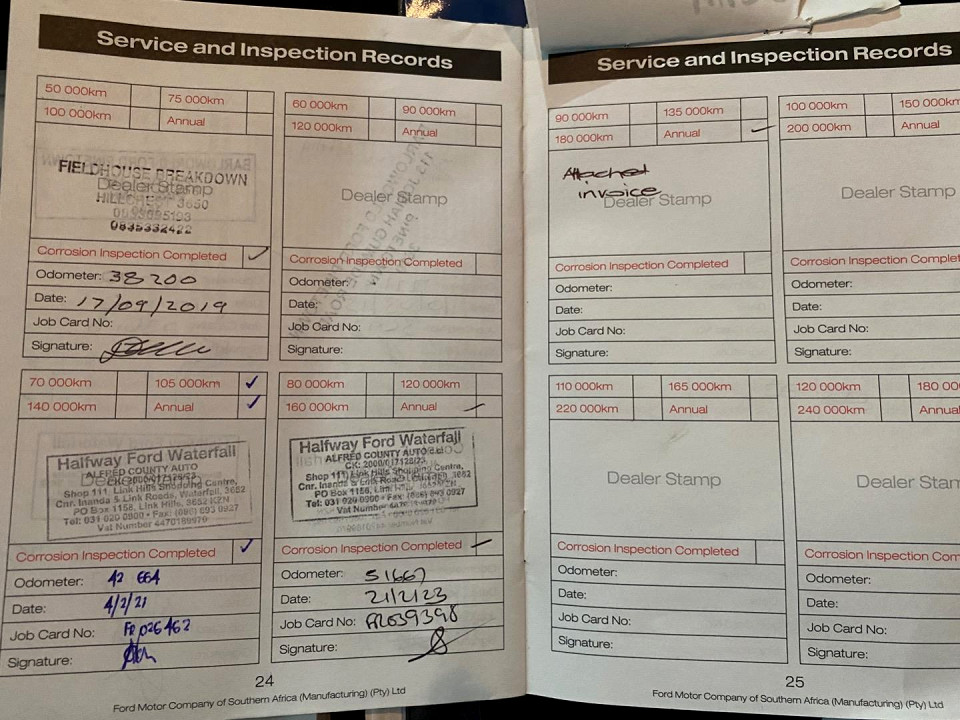 Service and Inspection Records
50 000km
75 000km
100 000km
Annual
FIELDHOUSE BREAKDOWN
Dealer Stamp
HILLCREST 3650
0835332422
Corrosion Inspection Completed ✓
Odometer: 38 200
Date: 17/09/2019
Job Card No:
Signature:
60 000km
90 000km
120 000km
Annual
Dealer Stamp
Corrosion Inspection Completed
Odometer:
Date:
Job Card No:
Signature:
70 000km
105 000km ✓
140 000km
Annual ✓
Halfway Ford Waterfall
ALFRED COUNTY AUTO
CK: 2000/017128/23
Shop 111, Link Hills Shopping Centre,
Cnr. Inanda & Link Roads, Waterfall, 3652
PO Box 1158, Link Hills, 3652 KZN
Tel: 031 020 0900 • Fax: (086) 693 0927
Vat Number 4470189979
Corrosion Inspection Completed ✓
Odometer: 42 664
Date: 4/2/21
Job Card No: 026462
Signature:
80 000km
120 000km
160 000km
Annual
Halfway Ford Waterfall
ALFRED COUNTY AUTO
CK: 2000/017128/23
Shop 111, Link Hills Shopping Centre,
Cnr. Inanda & Link Roads, Waterfall, 3652
PO Box 1158, Link Hills
Tel: 031 020 0900 • Fax: (086) 693 0927
Vat Number
Corrosion Inspection Completed
Odometer: 51667
Date: 21/2/23
Job Card No:
Signature:
24
Ford Motor Company of Southern Africa (Manufacturing) (Pty) Ltd
Service and Inspection Records
90 000km
135 000km
180 000km
Annual
Attached
invoice
Dealer Stamp
Corrosion Inspection Completed
Odometer:
Date:
Job Card No:
Signature:
100 000km
150 000km
200 000km
Annual
Dealer Stamp
Corrosion Inspection Complet
Odometer:
Date:
Job Card No:
Signature:
110 000km
165 000km
220 000km
Annual
Dealer Stamp
Corrosion Inspection Completed
Odometer:
Date:
Job Card No:
Signature:
120 000km
180 00
240 000km
Annual
Dealer Stam
Corrosion Inspection Com
Odometer:
Date:
Job Card No:
Signature:
25
Ford Motor Company of Southern Africa (Manufacturing) (Pty) Ltd